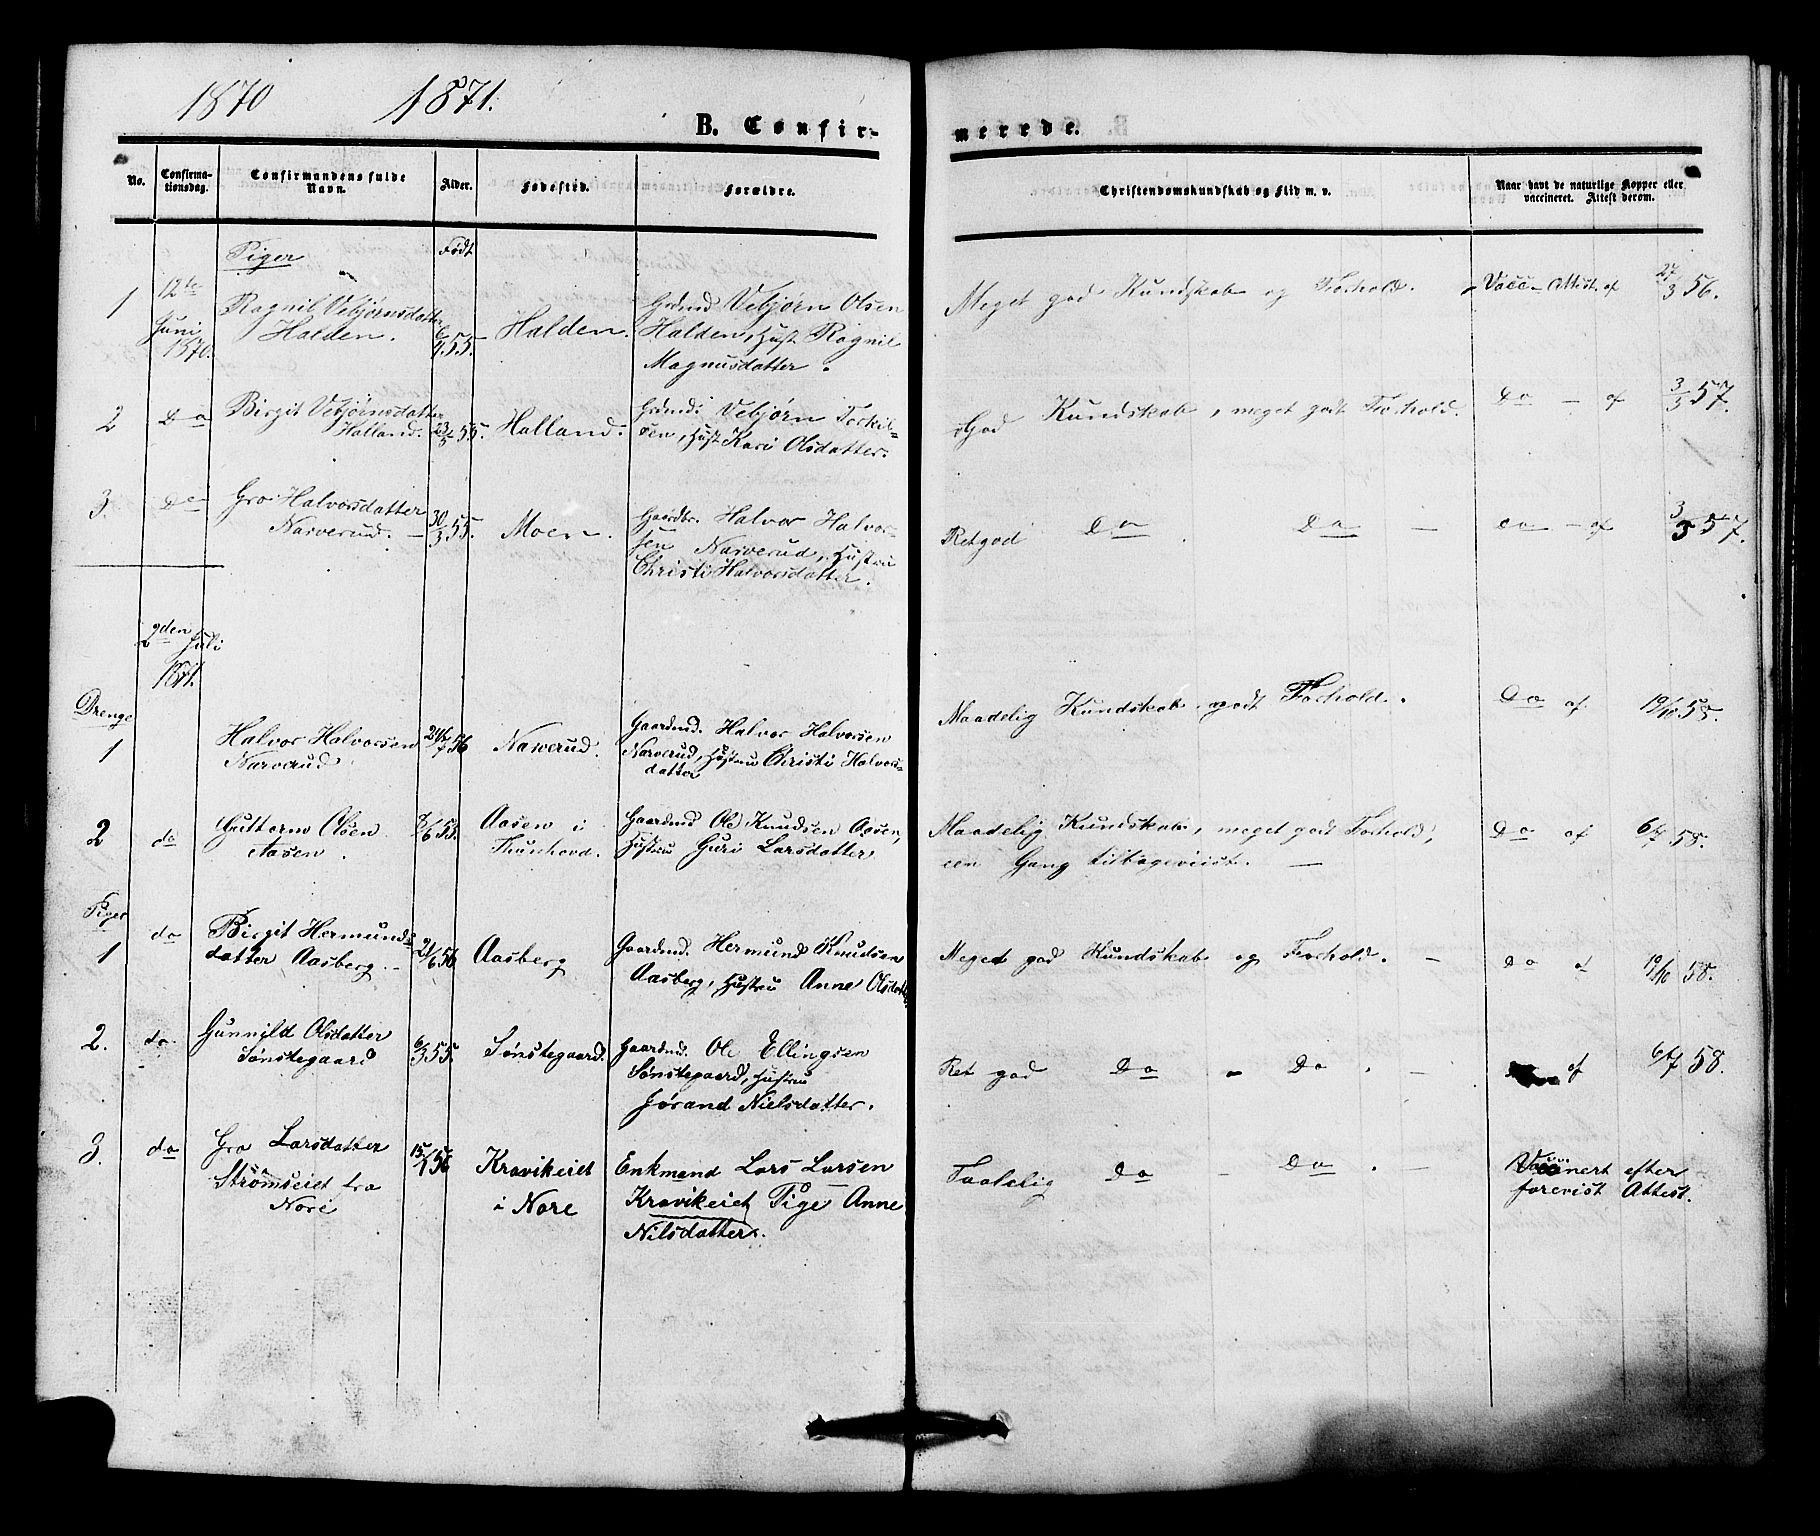 1870 1871.
B. Confirmerede.
No. Confirmationsdag. Confirmandens fulde Navn. Alder. Fødested. Forældre. Christendomskundskab og Flid m. v. Naar havt de naturlige Kopper eller vaccineret. Attest derom.
Piger Født
1 12te Juni 1870. Ragnil Vebjørnsdatter Halden. 6/4 55. Halden. Grdmd Vebjørn Olsen Halden, Hust Ragnil Magnusdatter. Meget god Kundskab og Forhold. Vacc- Attest af 27/3 56.
2 Do Birgit Vebjørnsdatter Halland. 55. Halland. Grdmd: Vebjørn Torkilsen, Hust Kari Olsdatter. God Kundskab, meget godt Forhold. Do - af 3/5 57.
3. Do Gro Halvorsdatter Narverud. 30/3 55. Moen. Gaardbr. Halvor Halvorsen Narverud, Hustru Christi Halvorsdatter. Retgod Do Do - do - af 3/5 57.
2den Juli 1871.
Drenge
1 Halvor Halvorsen Narverud 56 Narverud. Gaardmd. Halvor Halvorsen Narverud, Hustru Christi Halvorsdatter Maadelig Kundskab, godt Forhold. Do af 19/10 58.
2 do Guttorm Olsen Aasen. 8/6 55. Aasen i Thunhovd. Gaardmd Ole Knudsen Aasen, Hustru Guri Larsdatter Maadelig Kundskab, meget godt Forhold, een Gang tilbageviist. - Do af 6/7 58.
Piger
1 do Birgit Hermundsdatter Aasberg. 56 Aasberg Gaardmd. Hermund Knudsen Aasberg, Hustru Anne Olsdatter Meget god Kundskab og Forhold. - Do af 19/10 58.
2. do. Gunnild Olsdatter Sønstegaard 6/3 55. Sønstegaard. Gaardmd. Ole Ellingsen Sønstegaard, Hustru Jørand Nielsdatter. Ret god Do - Do. - af 6/7 58.
3. do Gro Larsdatter Strømseiet fra Nore 15/1 56 Kravikeiet i Nore Enkmand Lars Larsen Kravikeiet Pige Anne Nilsdatter. Taalelig Do - Do. - Vaccinert efter forevist Attest.